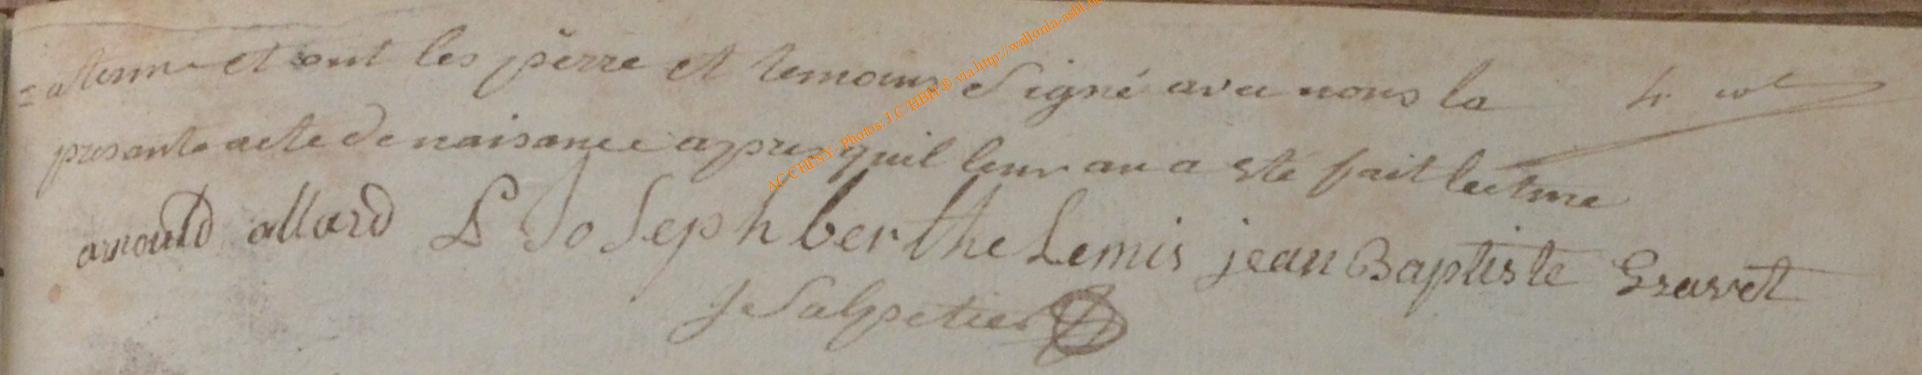 et ont les pèrre et temoins Signé avec nous la
presante acte de naisance apres quil leur an a eté fait lecture
arnould allard L Joseph berthe Lemis jean Baptiste Gravet
J Salpetier
AC CHINY - Photos: J.C. HBH @ via http://wallonia-asbl.